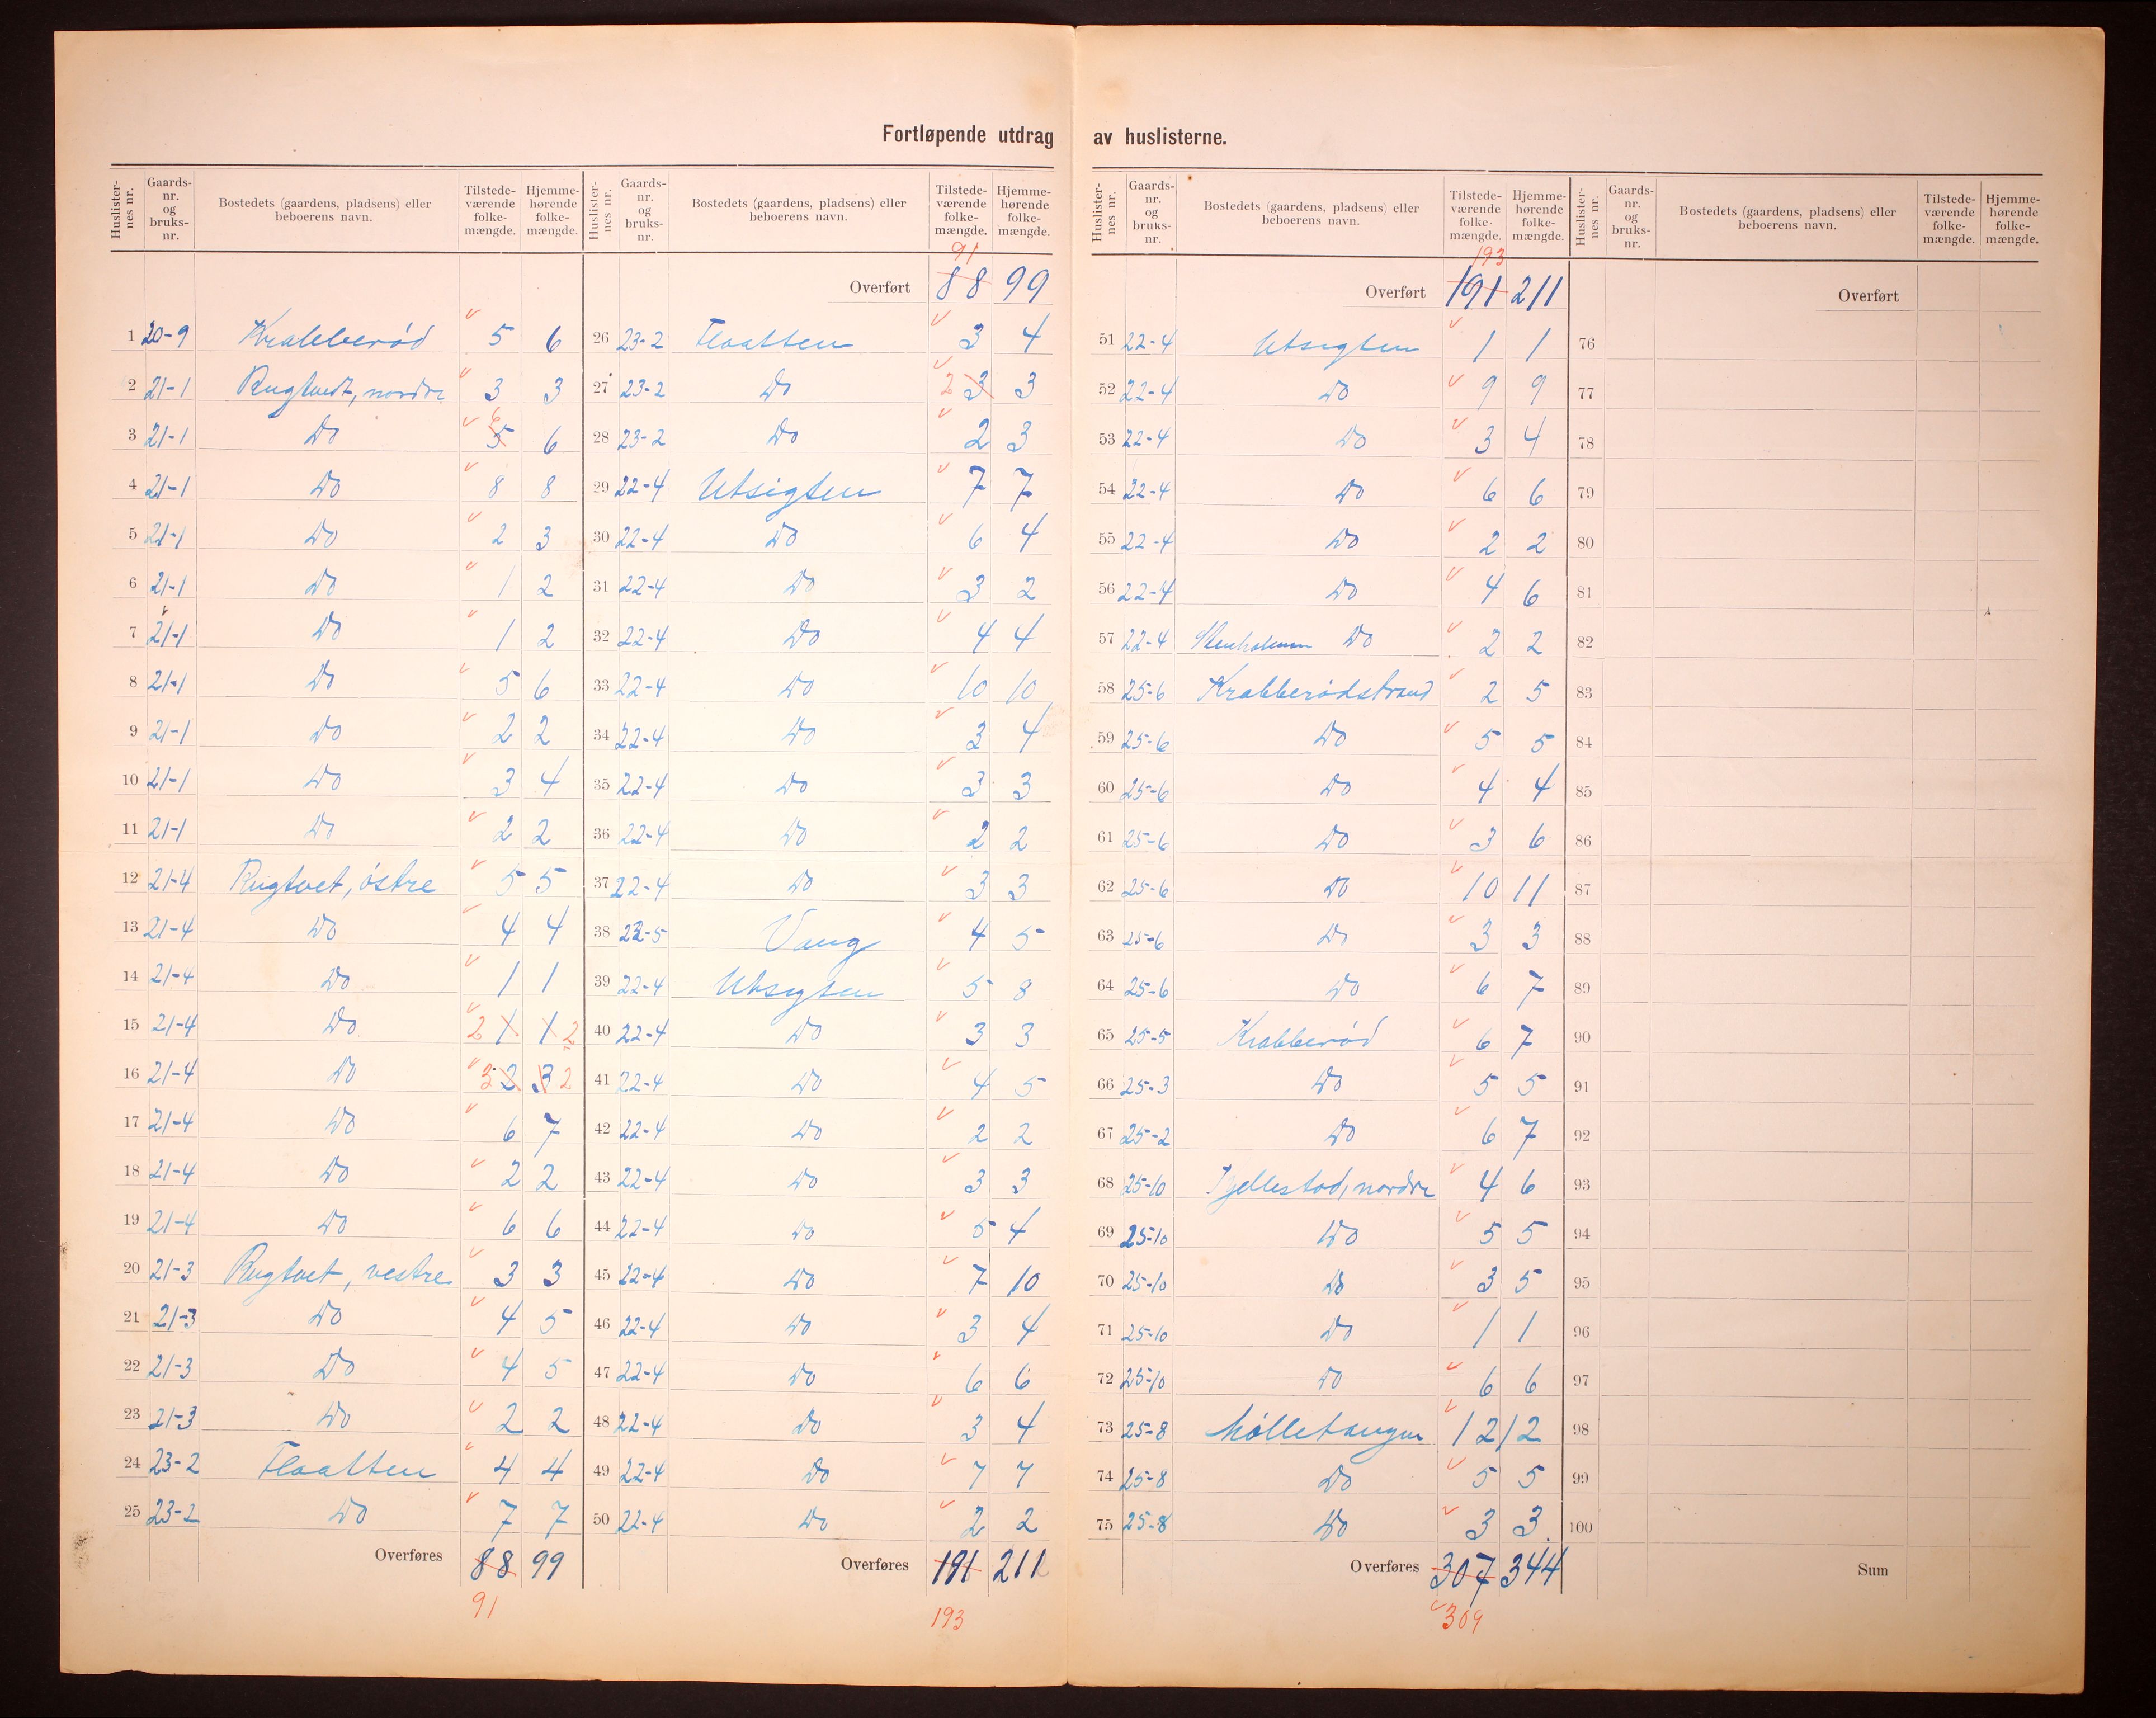 Fortløpende utdrag av huslisterne.
Huslister-nes nr. Gaards-nr. og bruks-nr. Bostedets (gaardens, pladsens) eller beboerens navn. Tilstede-værende folke-mængde. Hjemme-hørende folke-mængde.
1 20-9 Krabberød 5 6
2 21-1 Rugtvedt, nordre 3 3
3 21-1 Do 5 6 6
4 21-1 Do 8 8
5 21-1 Do 2 3
6 21-1 Do 1 2
7 21-1 Do 1 2
8 21-1 Do 5 6
9 21-1 Do 2 2
10 21-1 Do 3 4
11 21-1 Do 2 2
12 21-4 Rugtvet, østre 5 5
13 21-4 Do 4 4
14 21-4 Do 1 1
15 21-4 Do 2 1 1 2
16 21-4 Do 3 2 3 2
17 21-4 Do 6 7
18 21-4 Do 2 2
19 21-4 Do 6 6
20 21-3 Rugtvet, vestre 3 3
21 21-3 Do 4 5
22 21-3 Do 4 5
23 21-3 Do 2 2
24 23-2 Flaatten 4 4
25 23-2 Do 7 7
Overføres 88 99
91
Huslister-nes nr. Gaards-nr. og bruks-nr. Bostedets (gaardens, pladsens) eller beboerens navn. Tilstede-værende folke-mængde. Hjemme-hørende folke-mængde.
91
Overført 88 99
26 23-2 Flaatten 3 4
27 23-2 Do 2 3 3
28 23-2 Do 2 3
29 22-4 Utsigten 7 7
30 22-4 Do 6 4
31 22-4 Do 3 2
32 22-4 Do 4 4
33 22-4 Do 10 10
34 22-4 Do 3 4
35 22-4 Do 3 3
36 22-4 Do 2 2
37 22-4 Do 3 3
38 22-5 Vang 4 5
39 22-4 Utsigten 5 8
40 22-4 Do 3 3
41 22-4 Do 4 5
42 22-4 Do 2 2
43 22-4 Do 3 3
44 22-4 Do 5 4
45 22-4 Do 7 10
46 22-4 Do 3 4
47 22-4 Do 6 6
48 22-4 Do 3 4
49 22-4 Do 7 7
50 22-4 Do 2 2
Overføres 191 211
193
Huslister-nes nr. Gaards-nr. og bruks-nr. Bostedets (gaardens, pladsens) eller beboerens navn. Tilstede-værende folke-mængde. Hjemme-hørende folke-mængde.
193
Overført 191 211
51 22-4 Utsigten 1 1
52 22-4 Do 9 9
53 22-4 Do 3 4
54 22-4 Do 6 6
55 22-4 Do 2 2
56 22-4 Do 4 6
57 22-4 Do 2 2
58 25-6 Krabberødstrand 2 5
59 25-6 Do 5 5
60 25-6 Do 4 4
61 25-6 Do 3 6
62 25-6 Do 10 11
63 25-6 Do 3 3
64 25-6 Do 6 7
65 25-5 Krabberød 6 7
66 25-3 Do 5 5
67 25-2 Do 6 7
68 25-10 Tjellestad, nordre 4 6
69 25-10 Do 5 5
70 25-10 Do 3 5
71 25-10 Do 1 1
72 25-10 Do 6 6
73 25-8 Mølletangen 12 12
74 25-8 Do 5 5
75 25-8 Do 3 3
Overføres 307 344
309
Huslister-nes nr. Gaards-nr. og bruks-nr. Bostedets (gaardens, pladsens) eller beboerens navn. Tilstede-værende folke-mængde. Hjemme-hørende folke-mængde.
Overført
76
77
78
79
80
81
82
83
84
85
86
87
88
89
90
91
92
93
94
95
96
97
98
99
100
Sum